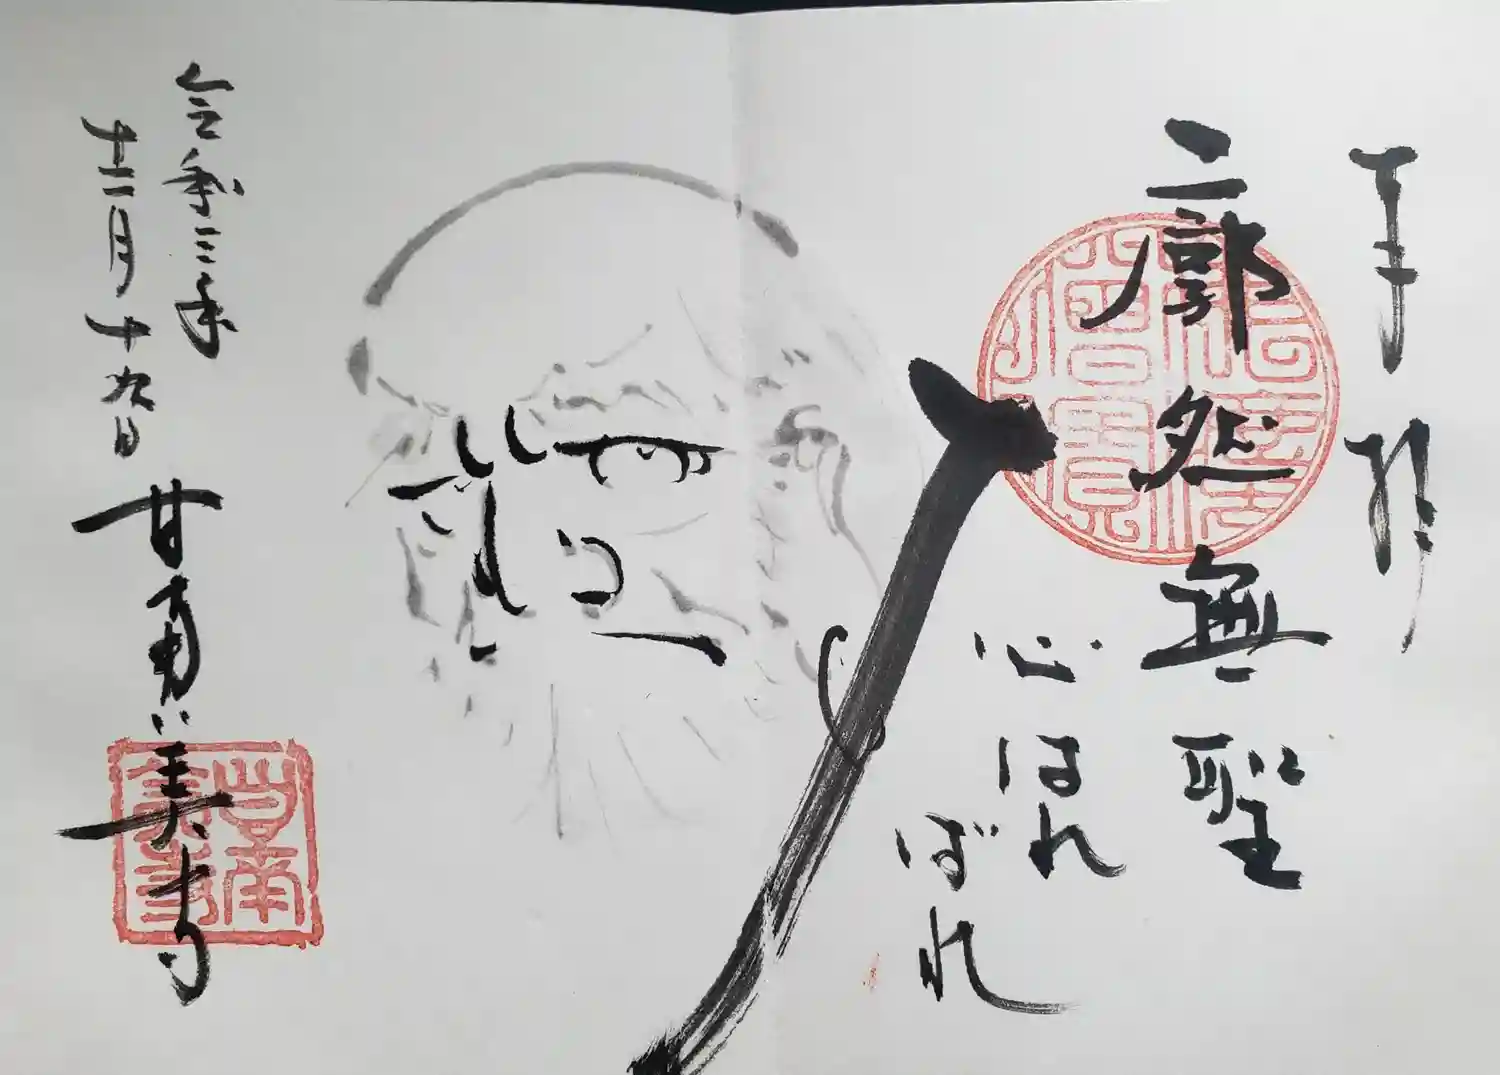 奉拝
廓然無聖
佛法
僧寶
心はれ
ばれ
令和三年
十二月十九日
甘南美寺